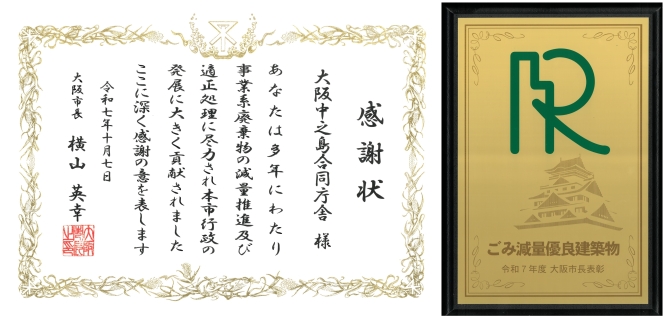 感謝状
大阪中之島合同庁舎 様
あなたは多年にわたり
事業系廃棄物の減量推進及び
適正処理に尽力され本市行政の
発展に大きく貢献されました
ここに深く感謝の意を表します
令和七年十月七日
大阪市長 横山英幸
R
ごみ減量優良建築物
令和7年度 大阪市長表彰